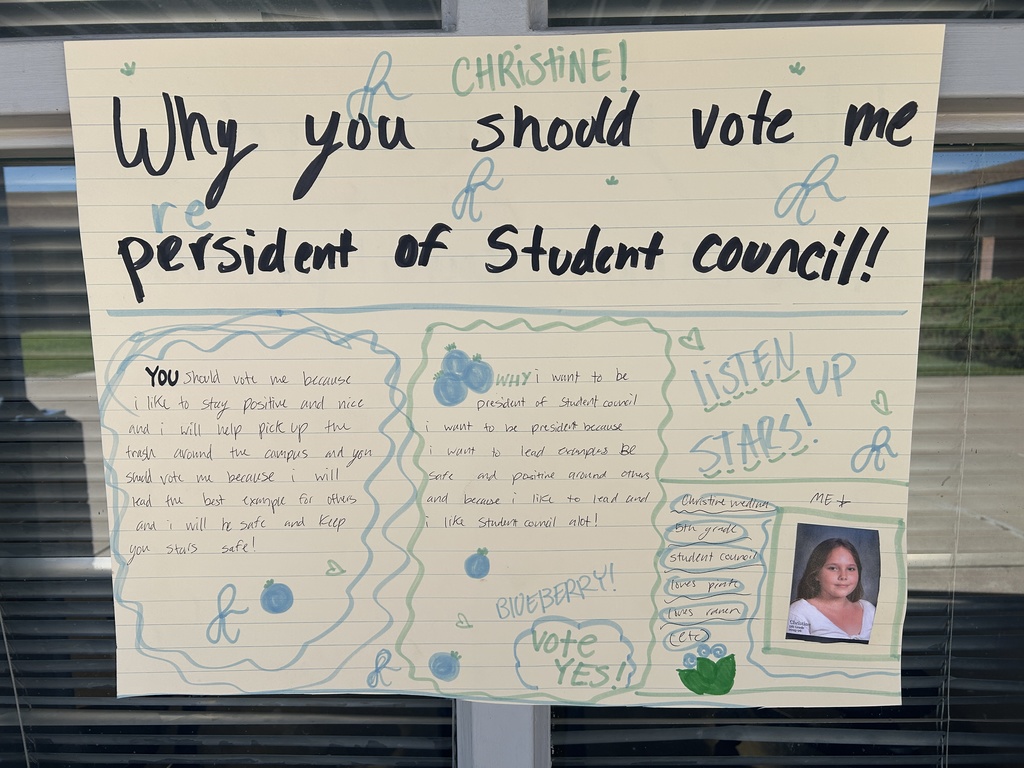 CHRISTINE!
Why you should vote me
re
persident of Student council!
YOU should vote me because
i like to stay positive and nice
and i will help pick up the
trash around the campus and you
should vote me because i will
lead the best example for others
and i will be safe and keep
you stars safe!
WHY i want to be
president of student council
i want to be president because
i want to lead examples BE
safe and positive around others
and because i like to lead and
i like student council alot!
BlUEBERRY!
Vote
YES!
liSTEN UP
STARS!
Christine medina
5th grade
student council
loves pink
loves ramen
(etc)
ME
Christine